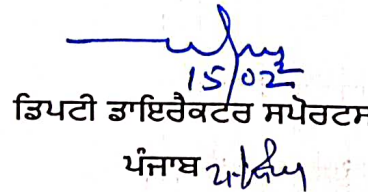 15/02
ਡਿਪਟੀ ਡਾਇਰੈਕਟਰ ਸਪੋਰਟਸ
ਪੰਜਾਬ